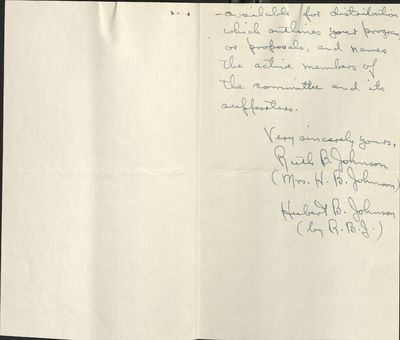 - available for distribution
which outlines your program
or proposals, and names
the active members of
the committee and its
supporters.
Very sincerely yours,
Ruth B. Johnson
(Mrs. H. B. Johnson)
Hubert B. Johnson
(by R.B.J.)